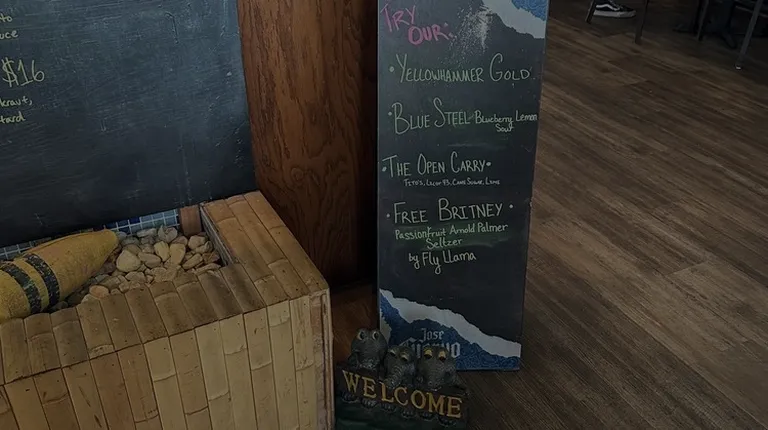 to
uce
$16
kraut,
tard
TRY
OUR:
• YELLOWHAMMER GOLD
• BLUE STEEL - Blueberry Lemon
Sour
• THE OPEN CARRY •
TITO'S, LICOR 43, CANE SUGAR, LIME
• FREE BRITNEY •
Passionfruit Arnold Palmer
Seltzer
by Fly Llama
Jose
Cuervo
WELCOME